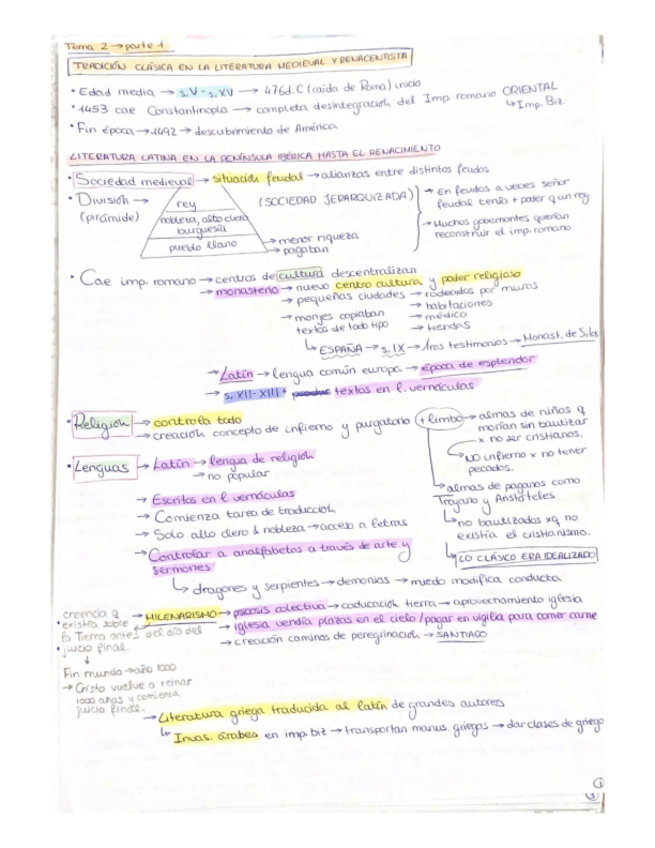 Tema 2 → parte 1
TRADICIÓN CLÁSICA EN LA LITERATURA MEDIEVAL Y RENACENTISTA
• Edad media → s.V - s.XV → 476d.C (caída de Roma) inicio
• 1453 cae Constantinopla → completa desintegración del Imp. romano ORIENTAL
↳ Imp. Biz
• Fin época → 1492 → descubrimiento de América
LITERATURA LATINA EN LA PENÍNSULA IBÉRICA HASTA EL RENACIMIENTO
• Sociedad medieval → situación feudal → alianzas entre distintos feudos
• División →
(pirámide)
rey
nobleza, alto clero
burguesía
pueblo llano
→ menor riqueza
→ pagaban
(SOCIEDAD JERARQUIZADA)
→ En feudos a veces señor
feudal tenía + poder q un rey
→ Muchos gobernantes querían
reconstruir el imp. romano
• Cae imp. romano → centros de cultura descentralizan
→ monasterio → nuevo centro cultura y poder religioso
→ pequeñas ciudades → rodeadas por muros
→ habitaciones
→ médico
→ tiendas
→ monjes copiaban
textos de todo tipo
↳ ESPAÑA → s. IX → 1ros testimonios → Monast. de Silos
→ Latín → lengua común europa → época de esplendor
→ s. XII - XIII + textos en l. vernáculas
• Religión → controla todo
→ creación concepto de infierno y purgatorio (+ limbo)
→ almas de niños q
morían sin bautizar
x no ser cristianos.
↳ NO infierno x no tener
pecados.
↳ almas de paganos como
Trajano y Aristóteles
↳ no bautizados xq no
existía el cristianismo.
↳ LO CLÁSICO ERA IDEALIZADO
• Lenguas → Latín → lengua de religión
→ no popular
→ Escritos en l. vernáculas
→ Comienza tarea de traducción
→ Solo alto clero & nobleza → acceso a letras
→ Controlar a analfabetos a través de arte y
sermones
↳ dragones y serpientes → demonios → miedo modifica conducta
→ MILENARISMO → psicosis colectiva → coducación tierra → aprovechamiento iglesia
→ iglesia vendía plazas en el cielo / pagar en vigilia para comer carne
→ creación caminos de peregrinación → SANTIAGO
creencia q
existía sobre
la Tierra antes del día del
juicio final.
↓
Fin mundo → año 1000
→ Cristo vuelve a reinar
1000 años y comienza
juicio final.
→ Literatura griega traducida al latín de grandes autores
↳ Invas. árabes en imp. biz → transportan manus. griegos → dar clases de griego
1